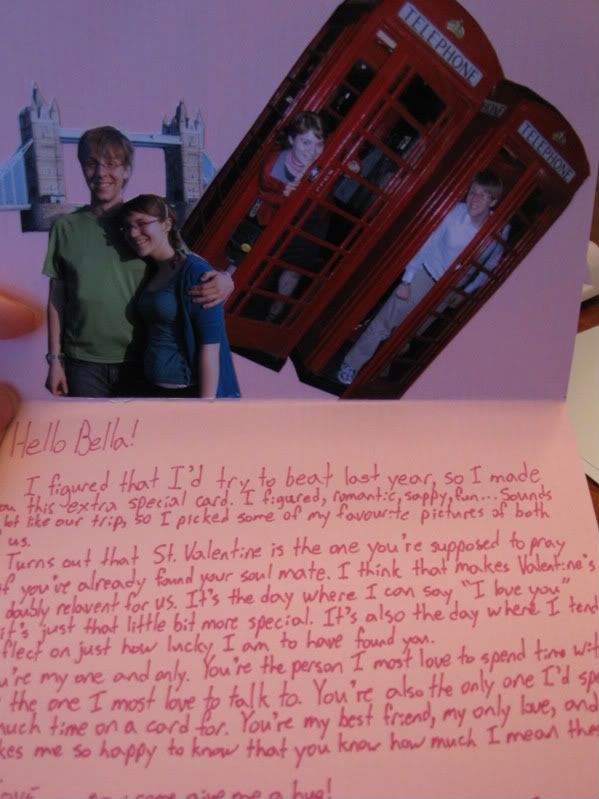 TELEPHONE
TELEPHONE
Hello Bella!
I figured that I'd try to beat last year, so I made
ou this extra special card. I figured, romantic, sappy, fun... Sounds
lot like our trip, so I picked some of my favourite pictures of both
us.
Turns out that St. Valentine is the one you're supposed to pray
if you've already found your soul mate. I think that makes Valentine's
doubly relavent for us. It's the day where I can say "I love you"
it's just that little bit more special. It's also the day where I tend
flect on just how lucky I am to have found you.
u're my one and only. You're the person I most love to spend time wit
the one I most love to talk to. You're also the only one I'd spe
much time on a card for. You're my best friend, my only love, and
kes me so happy to know that you know how much I mean thes
come give me a hug!